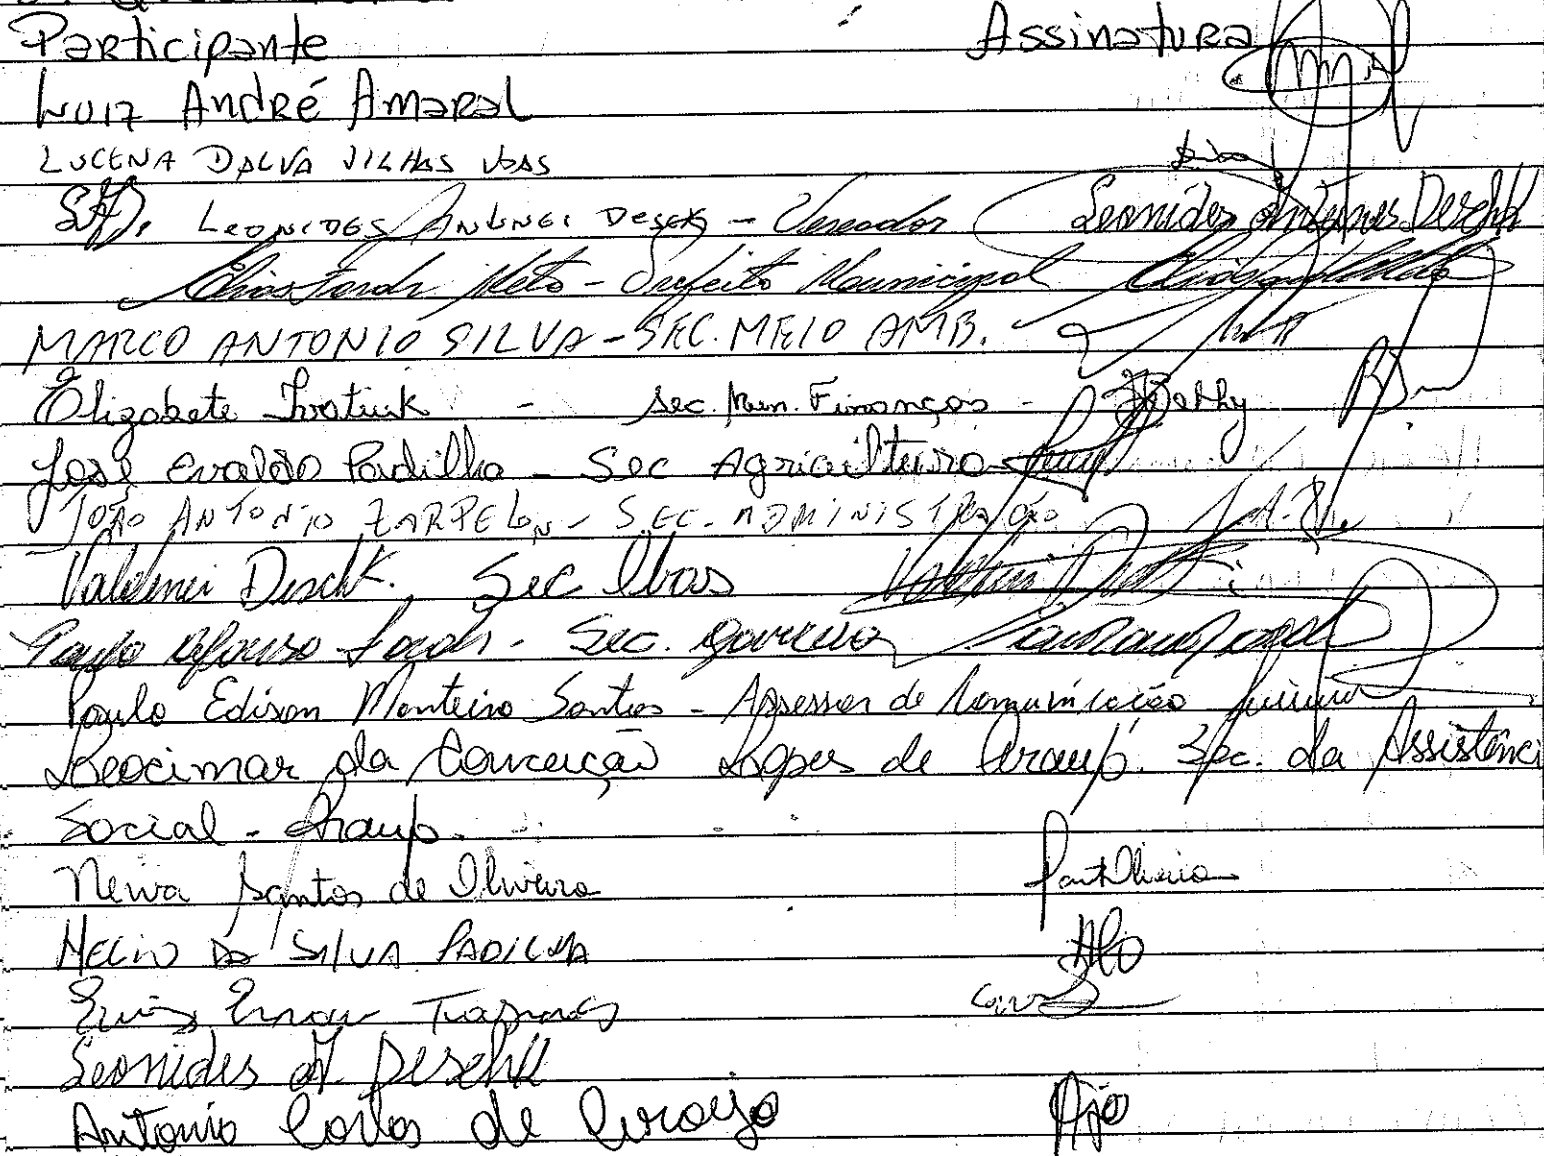 Participante Assinatura
Luiz André Amaral
LUCENA DALVA VILHAS BOAS
LEONIDES ANTUNES DESCHK - Vereador Leonides Antunes Deschk
Elias Farah Neto - Prefeito Municipal
MARCO ANTONIO SILVA - SEC. MEIO AMB.
Elizabete Iwatiuk - Sec. Mun. Finanças - Bethy
José Evaldo Padilha - Sec Agricultura
JOÃO ANTONIO ZARPELON - SEC. ADMINISTRAÇÃO
Valdinei Deschk. Sec Obas
Paulo Afonso Farah - Sec. governo
Paulo Edison Monteiro Santos - Assessor de Comunicação
Leocimar da Conceição Lopes de Araujo. Sec. da Assistênci
Social - Araujo.
Neiva Santos de Oliveira
HELIO DA SILVA PADILHA
Leonides A. Deschk
Antonio Carlos de Araujo